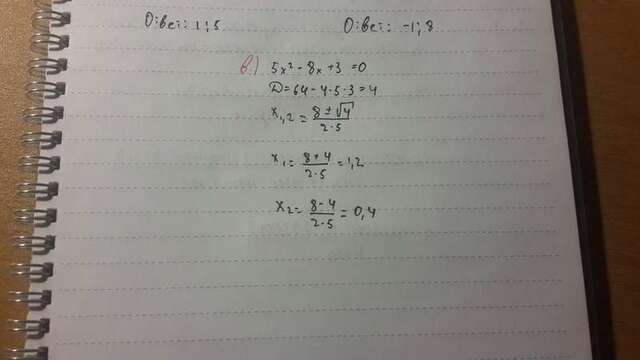 Ответ: 1; 5
Ответ: -1; 8
в) 5x² - 8x + 3 = 0
D = 64 - 4·5·3 = 4
x₁,₂ = (8 ± √4)/(2·5)
x₁ = (8 + 4)/(2·5) = 1,2
x₂ = (8 - 4)/(2·5) = 0,4